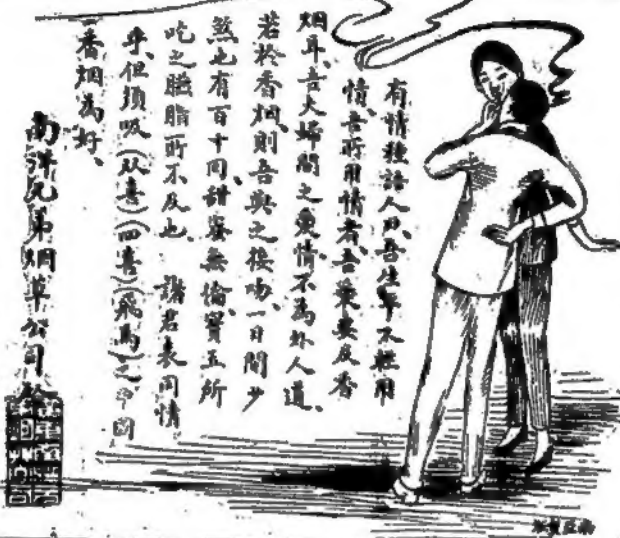 有情種語人曰吾生平不輕用
情吾所用情者吾萊要及香
烟耳吾夫婦間之愛情不為外人道、
若於香烟、則吾與之接吻、一日間少
煞也有百十回、甜蜜無倫、寶玉所
吃之臙脂所不及也 諸君表同情
乎、但須吸(双喜)(四喜)(飛馬)之中國
香烟為好、
南洋兄弟烟草公司啟